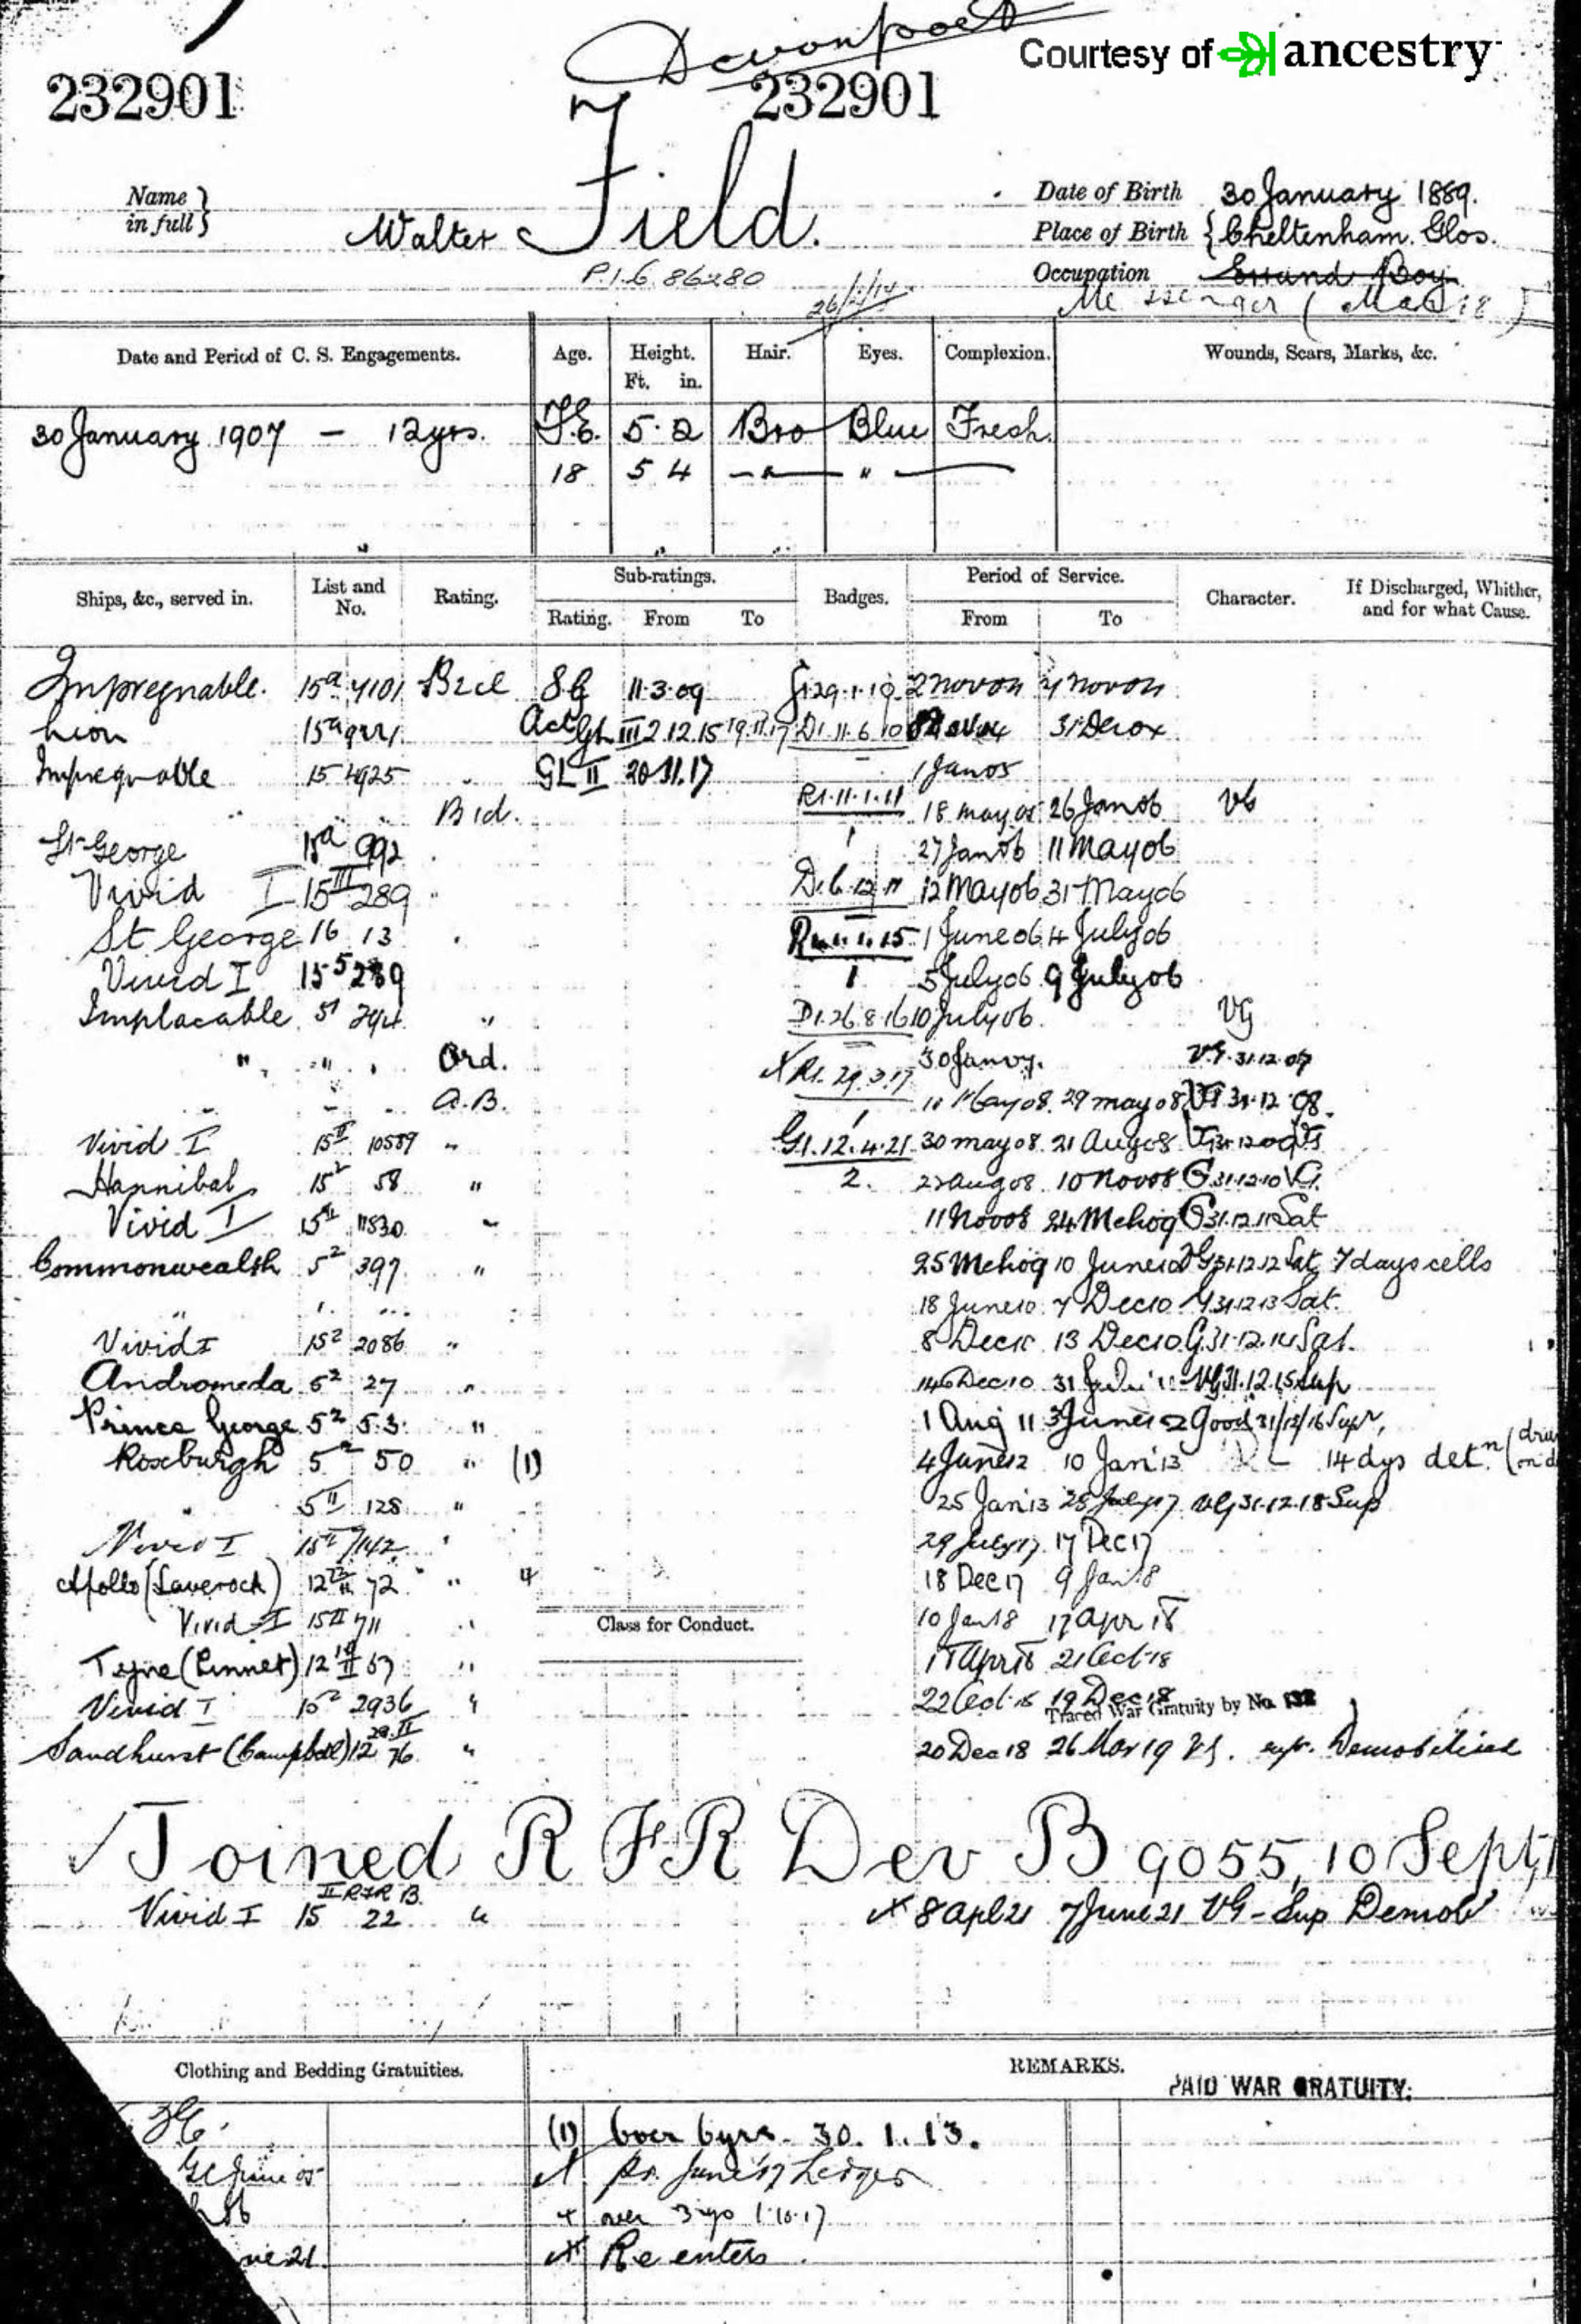 Devonport
Courtesy of ancestry
232901
232901
Name in full
Walter Field.
Date of Birth 30 January 1889.
Place of Birth Cheltenham. Glos.
Occupation Errand Boy
Messenger
P.I.6.86280
Date and Period of C. S. Engagements.
Age.
Height. Ft. in.
Hair.
Eyes.
Complexion.
Wounds, Scars, Marks, &c.
30 January 1907 - 12 yrs. 5·2 Bro Blue Fresh.
18 5 4 " "
Ships, &c., served in.
List and No.
Rating.
Sub-ratings.
Rating. From To
Badges.
Period of Service.
From To
Character.
If Discharged, Whither, and for what Cause.
Impregnable. 15a 4101 11·3·09
Lion 15a 31 Dec 04
Impregnable 15 4925 " GL II 20.11.17 1 Jan 05
R1·11·1·11 18 May 05 26 Jan 06 VG
St George 15a 992 27 Jan 06 11 May 06
Vivid I 15 III 289 " 12 May 06 31 May 06
St George 16 13 " 1 June 06 4 July 06
Vivid I 15 5 289 1 5 July 06 9 July 06
Implacable 51 " D1·26·8·16 10 July 06 VG
" " " Ord. 30 Jan 07. VG·31·12·07
" " " A.B. R1·29·3·17 May 08 29 May 08
Vivid I 15 II 10589 " G1·12·4·21 30 May 08 21 Aug 08
Hannibal 15 2 58 " 2. 22 Aug 08 10 Nov 08 G 31·12·10 VG
Vivid I 15 II 11830 " 11 Nov 08 24 Mch 09 G 31.12.11 Sat
Commonwealth 5 2 397 " 25 Mch 09 10 June 10 31·12·12 Sat 7 days cells
" 18 June 10 7 Dec 10 31·12·13 Sat.
Vivid I 15 2 2086 " 8 Dec 10 13 Dec 10 G. 31·12·14 Sat.
Andromeda 5 2 27 " 14 Dec 10 31 July 11 VG 31.12.15 Sup
Prince George 5 2 53 " 1 Aug 11 3 June 12 Good 31/12/16 Supr,
Roxburgh 5 2 50 " (1) 4 June 12 10 Jan 13 14 dys detn
" 5 II 128 " 25 Jan 13 28 July 17 VG 31·12·18 Sup
Vivid I 15 II 7142 " 29 July 17 17 Dec 17
Apollo (Laverock) 12 72 " 18 Dec 17 9 Jan 18
Vivid I 15 II 711 " 10 Jan 18 17 Apr 18
Class for Conduct.
Tyne (Linnet) 12 57 " 18 Apr 18 21 Oct 18
Vivid I 15 2 2936 " 22 Oct 18 19 Dec 18
Traced War Gratuity by No.
Sandhurst (Campbell) 12 76 " 20 Dec 18 26 Mar 19 VG. supr. Demobilised
Joined R F R Dev B 9055, 10 Sept
II RFR B.
Vivid I 15 22 " 8 Apl 21 7 June 21 VG - Sup Demob
Clothing and Bedding Gratuities.
REMARKS.
PAID WAR GRATUITY.
(1) over 6 yrs. 30. 1. 13.
June 17 Ledger
over 3 yrs 1·10·17
Re enters.